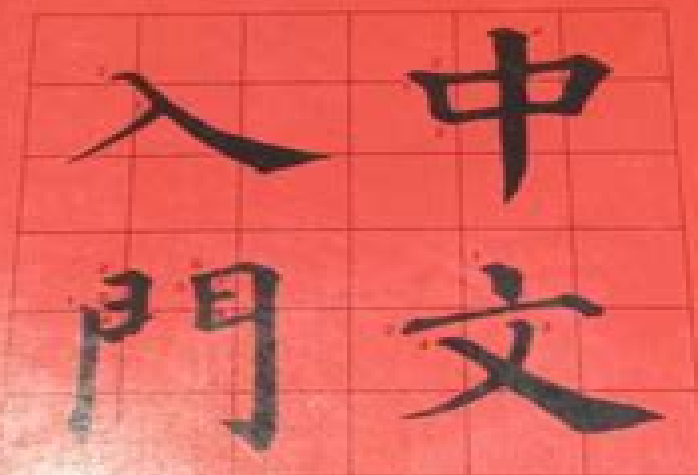 中文
入門